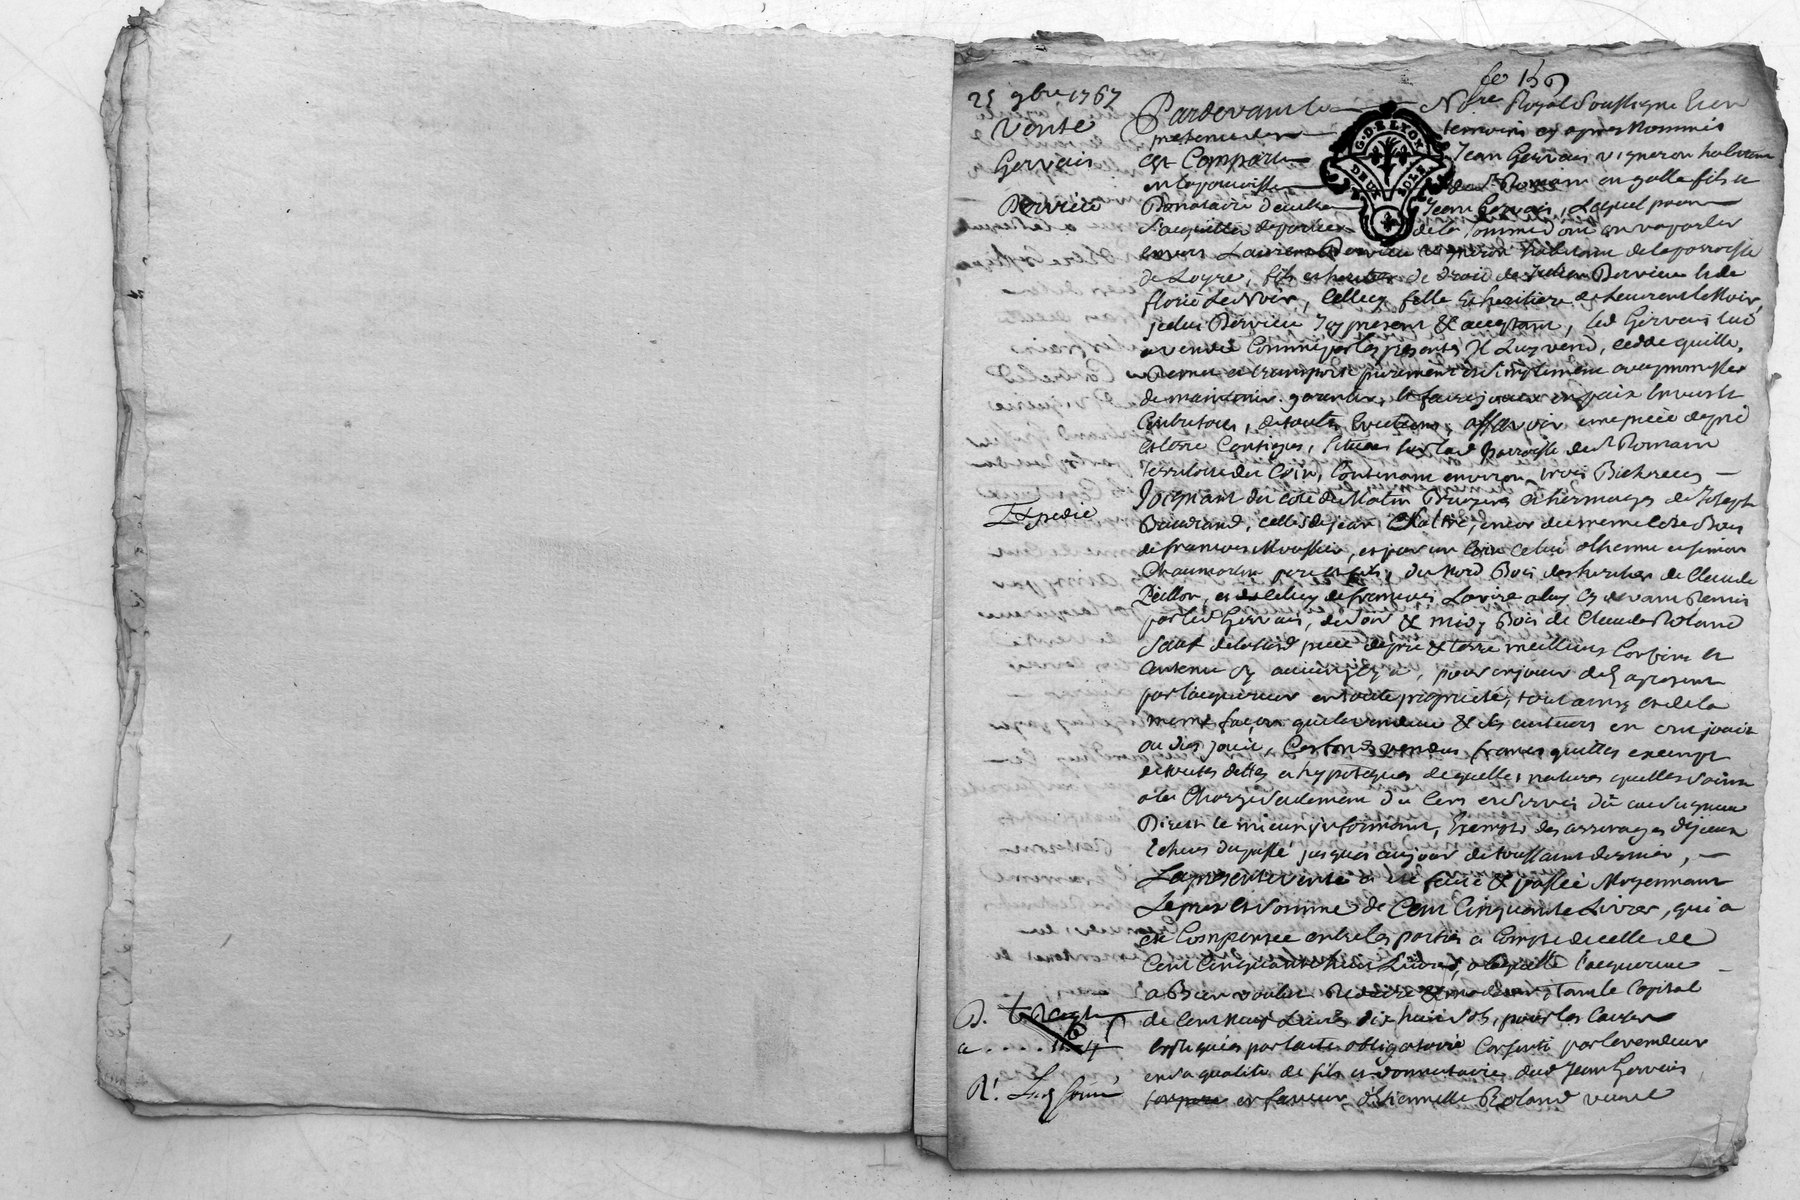 fe 15
25 9bre 1767
Vente
Gervais
Dervieu
Expedié
Pardevant le Nore Royal Soussigné et en
presence des temoins cy apres Nommés
est Comparu Jean Gervais vigneron habitant
en la parroisse de St Romain en galle fils et
Donataire d'autre Jean Gervais, Lequel pour
s'acquitter de partie de la somme dont on va parler
envers Laurent Dervieu vigneron habitant de la parroisse
de Loyre, fils et heritier de droit de Dervieu et de
florie LeNoir, Celle cy fille et heritiere de Laurent LeNoir,
Dervieu Icy present & acceptant, led Gervais lui
a vendu Comme par les presentes Il Luy vend, cedde quitte,
Remet et transporte purement et simplement avec promesse
de maintenir, garantir, et faire jouir en paix envers et
Contre tous, de toutes Evictions, assavoir une piece de pré
et terre Contigus, situées sur lad parroisse de St Romain
territoire du Coin, Contenant environ trois Bicherées
Joignant du coté du Matin Bruyeres et hermages de Joseph
Baudrand, celles de jean encor du meme coté Bois
de francois et par un Coin Celui d'Etienne et simon
Chaumartin pere et fils, du Nord Bois des heritiers de Claude
Peillon, et de celuy de francois a luy cy devant Remis
par led Gervais, de soir & midy Bois de Claude Roland
sauf de lad piece de pré & terre meilleurs Confins et
Contenu sy aucuns il y a, pour en jouir des apresent
par l'acquereur en toute proprieté, tout ainsy et de la
meme façon que le vendeur & ses auteurs en ont jouit
ou dus jouir, Ces fonds vendus francs quittes exempt
de toutes dettes et hypoteques de quelles natures quelles soient
a la Charge seulement du Cens et servis dû au seigneur
Direct le mieux informant, Exempts des arrerages d'yceux
Echeus du passé jusques au jour de toussaint dernier,
La presente vente a été faite & passée Moyennant
Le prix et somme de Cent Cinquante Livres, qui a
été Compensée entre les parties a Compte de celle de
Cent Cinquante huit Livres, a laquelle l'acquereur
a Bien voulu Reduire & moderer, tant le Capital
de Cent Neuf Livres dix huit sols, pour les Causes
Expliquées par l'acte obligatoire Consenti par le vendeur
en sa qualité de fils et donnataire dud Jean Gervais
en faveur d'Etiennette Roland veuve
G. D. LYON
DEUX SOLS